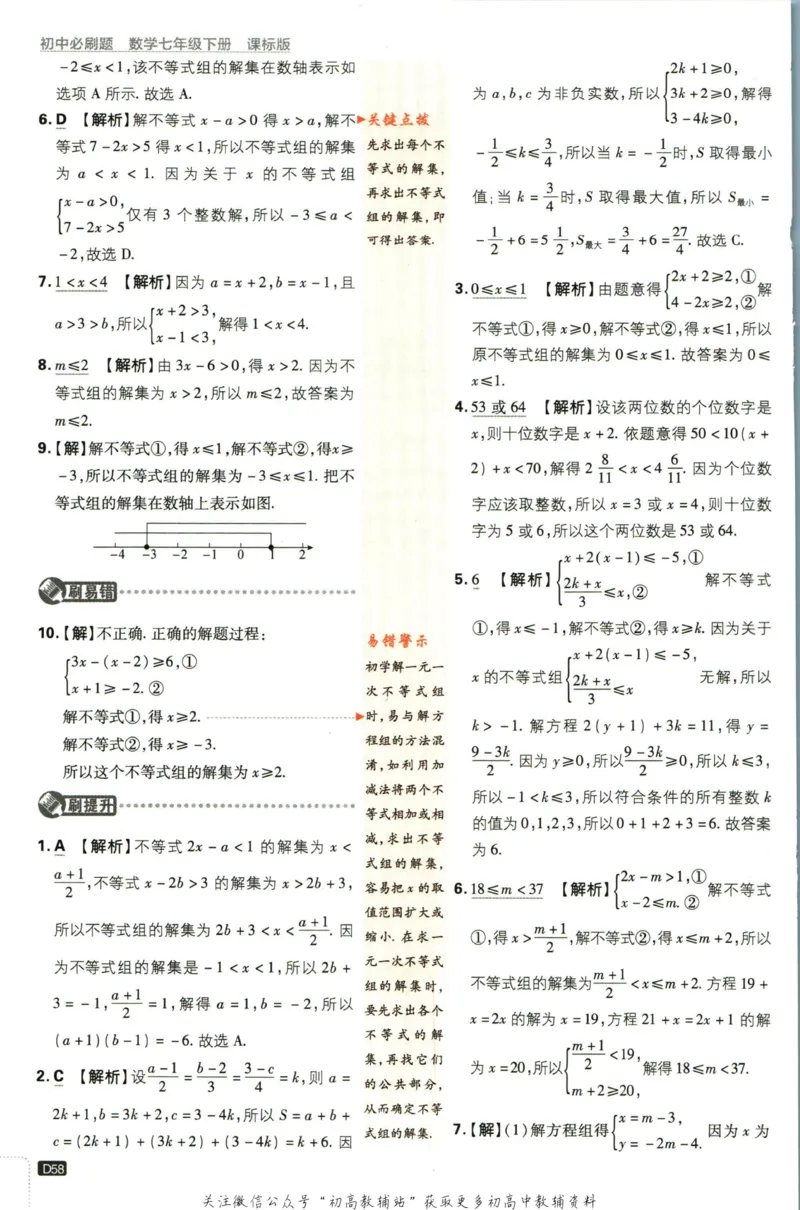 初中必刷题 数学七年级下册 课标版
-2≤x<1,该不等式组的解集在数轴表示如
选项 A 所示. 故选 A.
6. D 【解析】解不等式 x-a>0 得 x>a,解不
等式 7-2x>5 得 x<1,所以不等式组的解集
为 a < x < 1. 因为关于 x 的不等式组
{x-a>0,
7-2x>5 仅有 3 个整数解,所以 -3≤a<
-2,故选 D.
7. 1<x<4 【解析】因为 a=x+2,b=x-1,且
a>3>b,所以{x+2>3,
x-1<3, 解得 1<x<4.
8. m≤2 【解析】由 3x-6>0,得 x>2. 因为不
等式组的解集为 x>2,所以 m≤2,故答案为
m≤2.
9.【解】解不等式①,得 x≤1,解不等式②,得x≥
-3,所以不等式组的解集为 -3≤x≤1. 把不
等式组的解集在数轴上表示如图.
-4 -3 -2 -1 0 1 2
刷易错
10.【解】不正确. 正确的解题过程:
{3x-(x-2)≥6,①
x+1≥-2. ②
解不等式①,得 x≥2.
解不等式②,得 x≥-3.
所以这个不等式组的解集为 x≥2.
刷提升
1. A 【解析】不等式 2x-a<1 的解集为 x<
(a+1)/2,不等式 x-2b>3 的解集为 x>2b+3,
所以不等式组的解集为 2b+3<x<(a+1)/2. 因
为不等式组的解集是 -1<x<1,所以 2b+
3=-1,(a+1)/2=1,解得 a=1,b=-2,所以
(a+1)(b-1)=-6. 故选 A.
2. C 【解析】设(a-1)/2=(b-2)/3=(3-c)/4=k,则 a=
2k+1,b=3k+2,c=3-4k,所以 S=a+b+
c=(2k+1)+(3k+2)+(3-4k)=k+6. 因
D58
关键点拨
先求出每个不
等式的解集,
再求出不等式
组的解集,即
可得出答案.
易错警示
初学解一元一
次不等式组
时,易与解方
程组的方法混
淆,如利用加
减法将两个不
等式相加或相
减,求出不等
式组的解集,
容易把 x 的取
值范围扩大或
缩小. 在求一
元一次不等式
组的解集时,
要先求出各个
不等式的解
集,再找它们
的公共部分,
从而确定不等
式组的解集.
为 a,b,c 为非负实数,所以{2k+1≥0,
3k+2≥0,解得
3-4k≥0,
-1/2≤k≤3/4,所以当 k=-1/2时,S 取得最小
值;当 k=3/4时,S 取得最大值,所以 S最小=
-1/2+6=5 1/2,S最大=3/4+6=27/4. 故选 C.
3. 0≤x≤1 【解析】由题意得{2x+2≥2,①
4-2x≥2,②解
不等式①,得 x≥0,解不等式②,得 x≤1,所以
原不等式组的解集为 0≤x≤1. 故答案为 0≤
x≤1.
4. 53 或 64 【解析】设该两位数的个位数字是
x,则十位数字是 x+2. 依题意得 50<10(x+
2)+x<70,解得 2 8/11<x<4 6/11. 因为个位数
字应该取整数,所以 x=3 或 x=4,则十位数
字为 5 或 6,所以这个两位数是 53 或 64.
5. 6 【解析】{x+2(x-1)≤-5,①
(2k+x)/3≤x,② 解不等式
①,得 x≤-1,解不等式②,得 x≥k. 因为关于
x 的不等式组{x+2(x-1)≤-5,
(2k+x)/3≤x 无解,所以
k>-1. 解方程 2(y+1)+3k=11,得 y=
(9-3k)/2. 因为 y≥0,所以(9-3k)/2≥0,所以 k≤3,
所以 -1<k≤3,所以符合条件的所有整数 k
的值为 0,1,2,3,所以 0+1+2+3=6. 故答案
为 6.
6. 18≤m<37 【解析】{2x-m>1,①
x-2≤m. ②解不等式
①,得 x>(m+1)/2,解不等式②,得 x≤m+2,所以
不等式组的解集为(m+1)/2<x≤m+2. 方程 19+
x=2x 的解为 x=19,方程 21+x=2x+1 的解
为 x=20,所以{(m+1)/2<19,
m+2≥20, 解得 18≤m<37.
7.【解】(1)解方程组得{x=m-3,
y=-2m-4. 因为 x 为
关注微信公众号“初高教辅站”获取更多初高中教辅资料